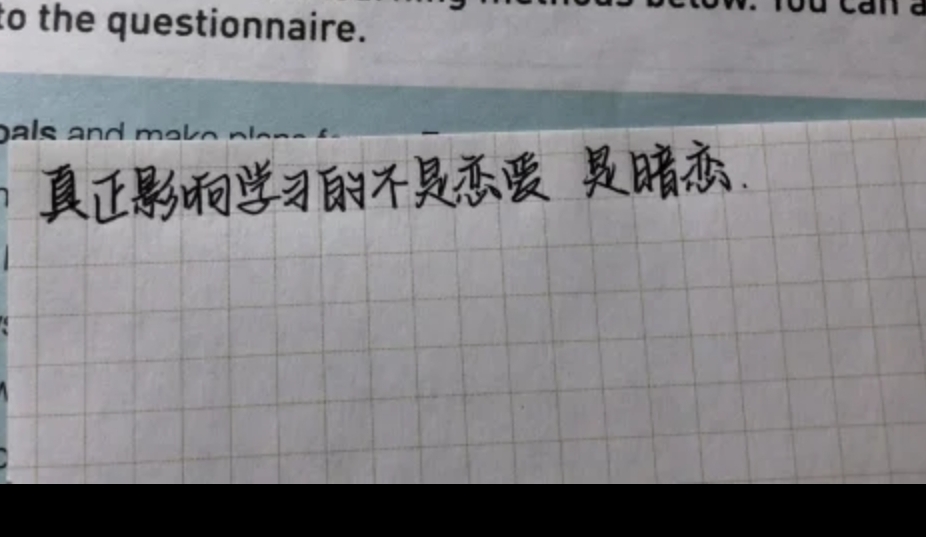 methods below. You can a
to the questionnaire.
oals and make plans
真正影响学习的不是恋爱 是暗恋.